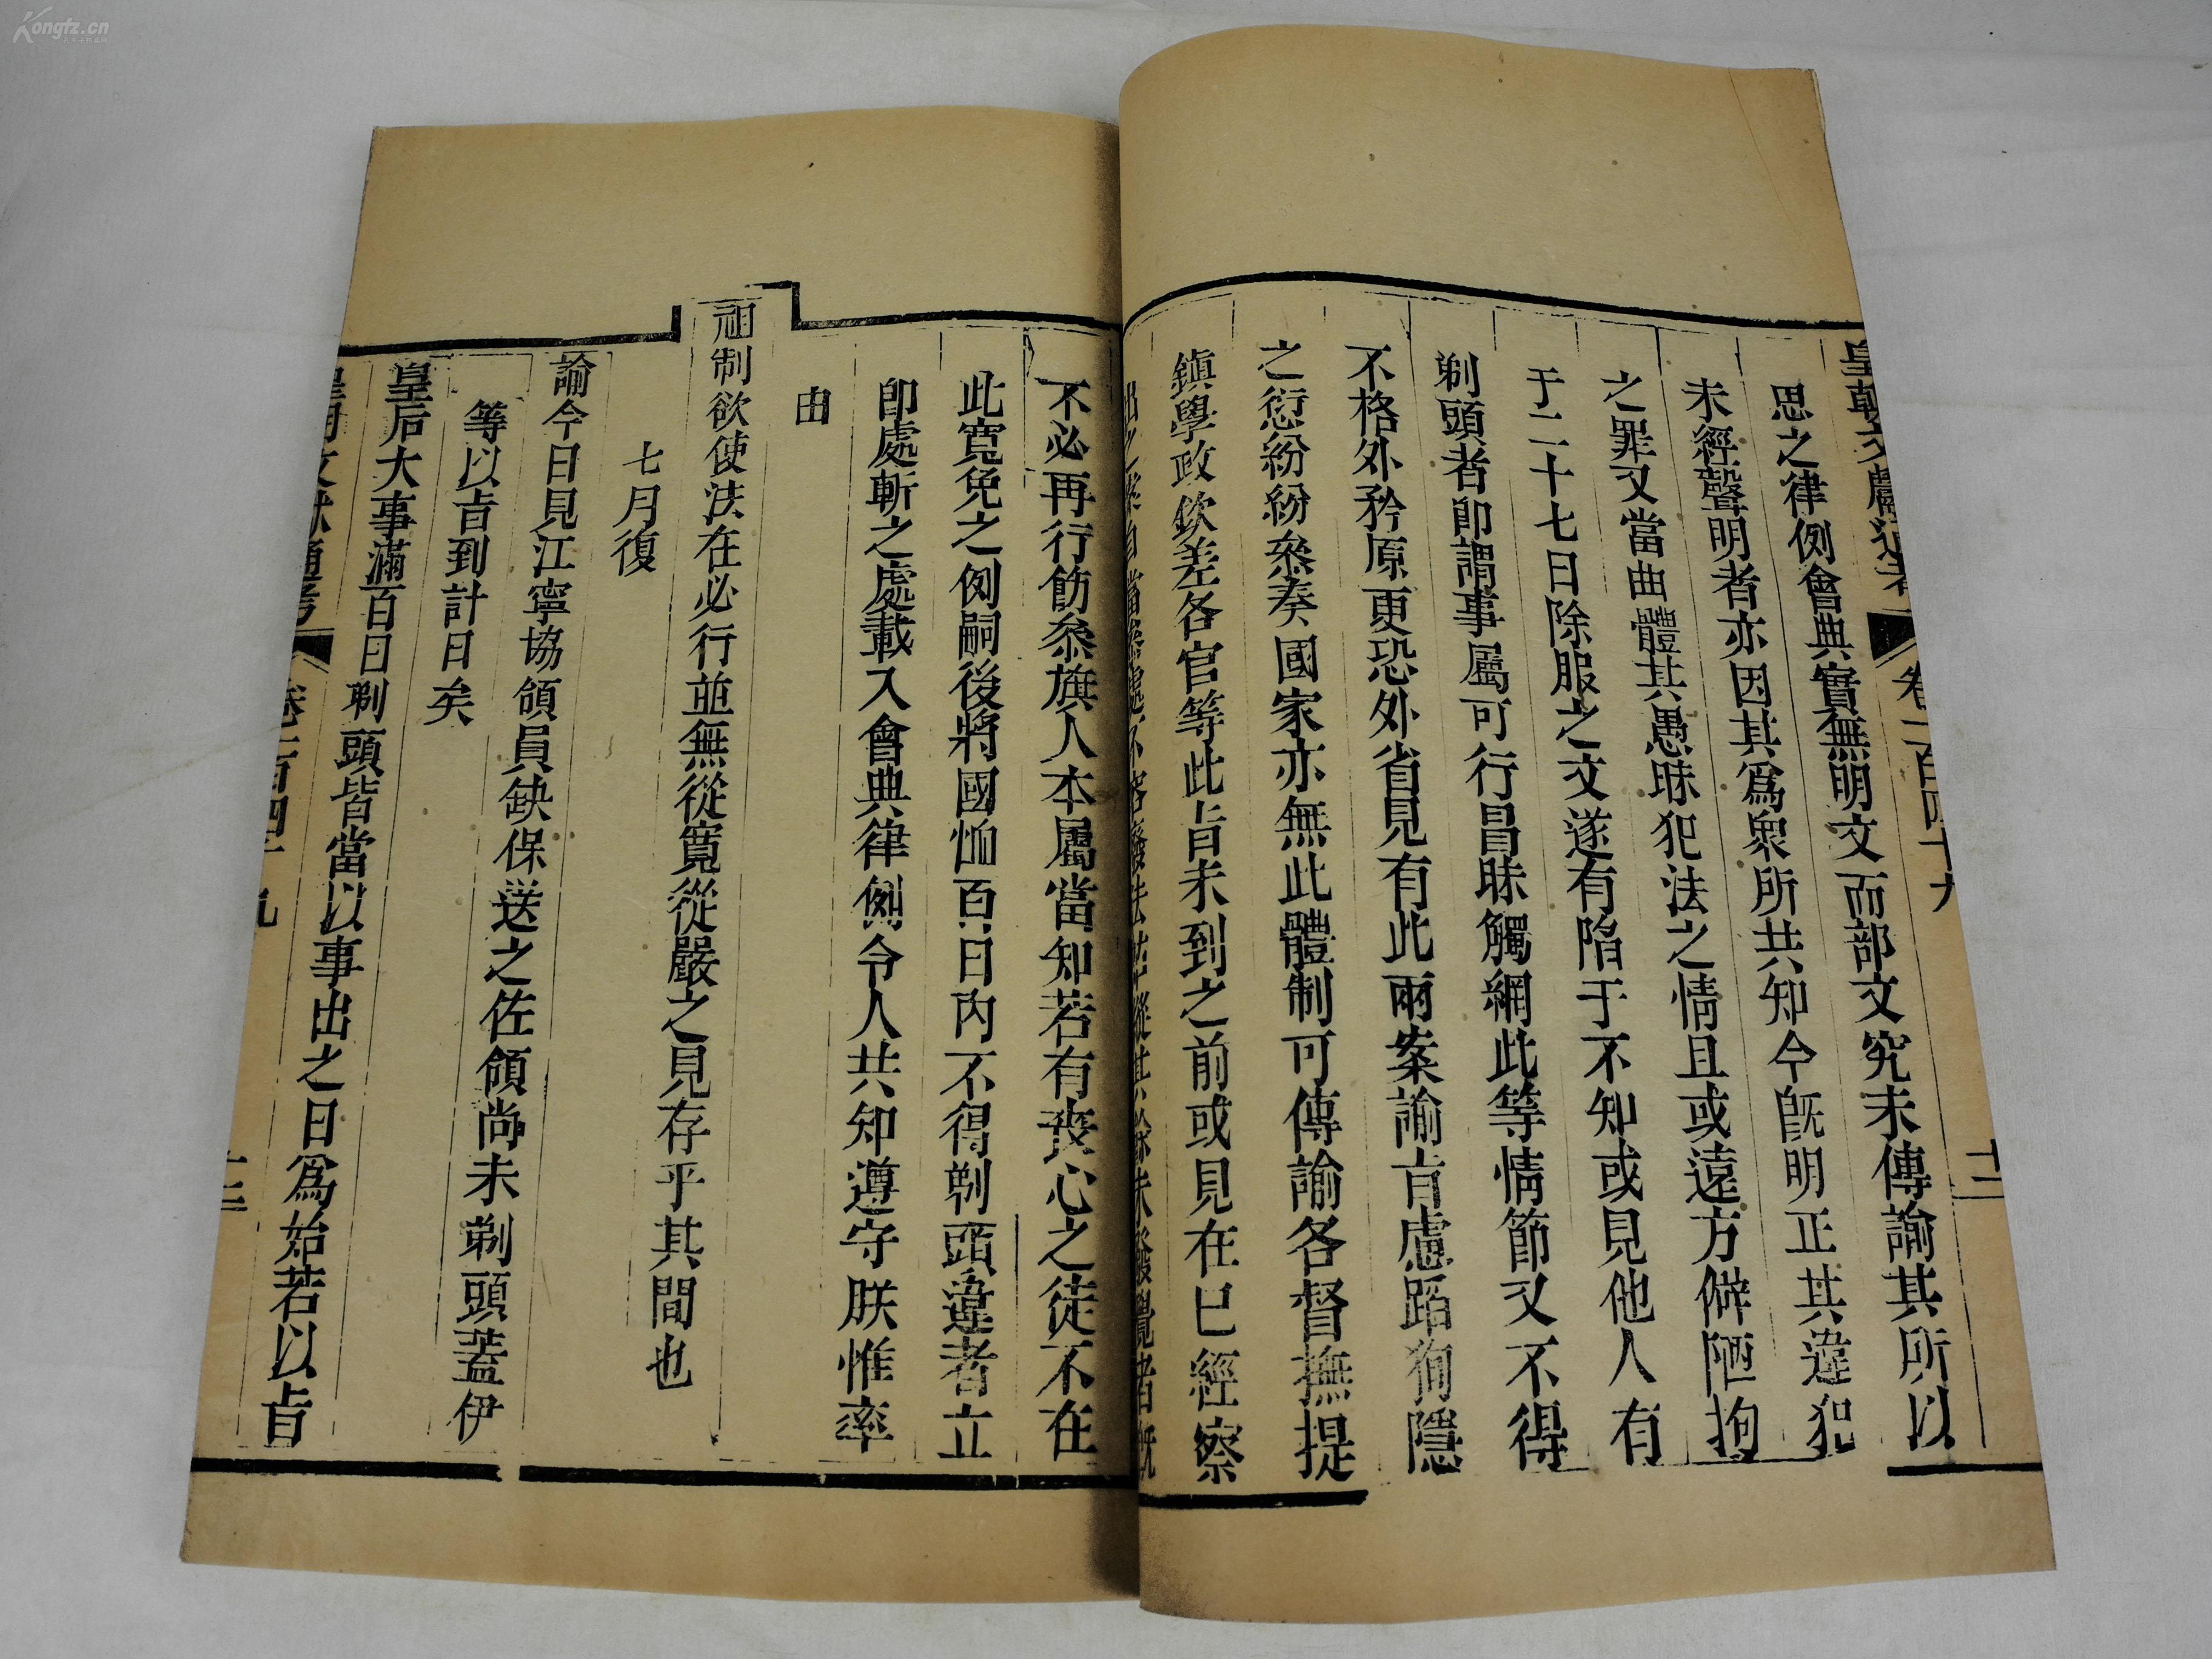 皇朝文獻通考 卷一百四十九 十二
思之律例會典實無明文而部文究未傳諭其所以
未經聲明者亦因其爲衆所共知今旣明正其違犯
之罪又當曲體其愚昧犯法之情且或遠方僻陋拘
于二十七日除服之文遂有陷于不知或見他人有
剃頭者卽謂事屬可行冒昧觸網此等情節又不得
不格外矜原更恐外省見有此兩案諭旨慮蹈狥隱
之愆紛紛叅奏國家亦無此體制可傳諭各督撫提
鎮學政欽差各官等此旨未到之前或見在已經察
出之案自當叅處不容廢法姑縱其餘未發覺者槪
不必再行飭叅旗人本屬當知若有喪心之徒不在
此寬免之例嗣後將國恤百日內不得剃頭違者立
卽處斬之處載入會典律例令人共知遵守朕惟率
由
祖制欲使法在必行並無從寬從嚴之見存乎其間也
七月復
諭今日見江寧協領員缺保送之佐領尚未剃頭蓋伊
等以旨到計日矣
皇后大事滿百日剃頭皆當以事出之日爲始若以旨
皇朝文獻通考 卷一百四十九 十二
Kongfz.cn